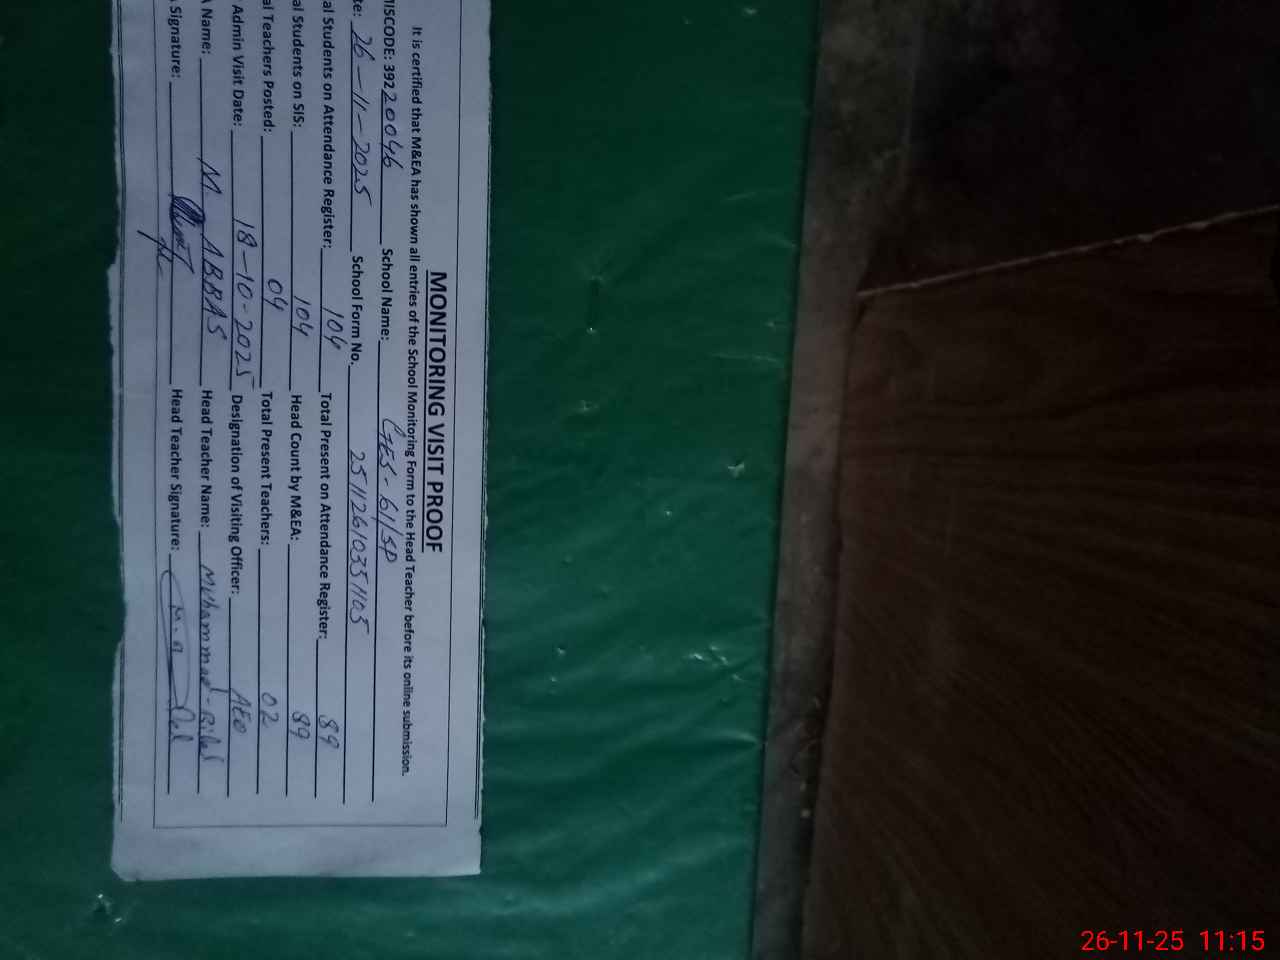 MONITORING VISIT PROOF
It is certified that M&EA has shown all entries of the School Monitoring Form to the Head Teacher before its online submission.
ISCODE: 39220046 School Name: GES - 61/5P
te: 26-11-2025 School Form No. 25112610351105
al Students on Attendance Register: 104 Total Present on Attendance Register: 89
al Students on SIS: 104 Head Count by M&EA: 89
al Teachers Posted: 04 Total Present Teachers: 02
Admin Visit Date: 18-10-2025 Designation of Visiting Officer: AEO
A Name: M. ABBAS Head Teacher Name: Muhammad-Bilal
Signature: Head Teacher Signature:
26-11-25 11:15